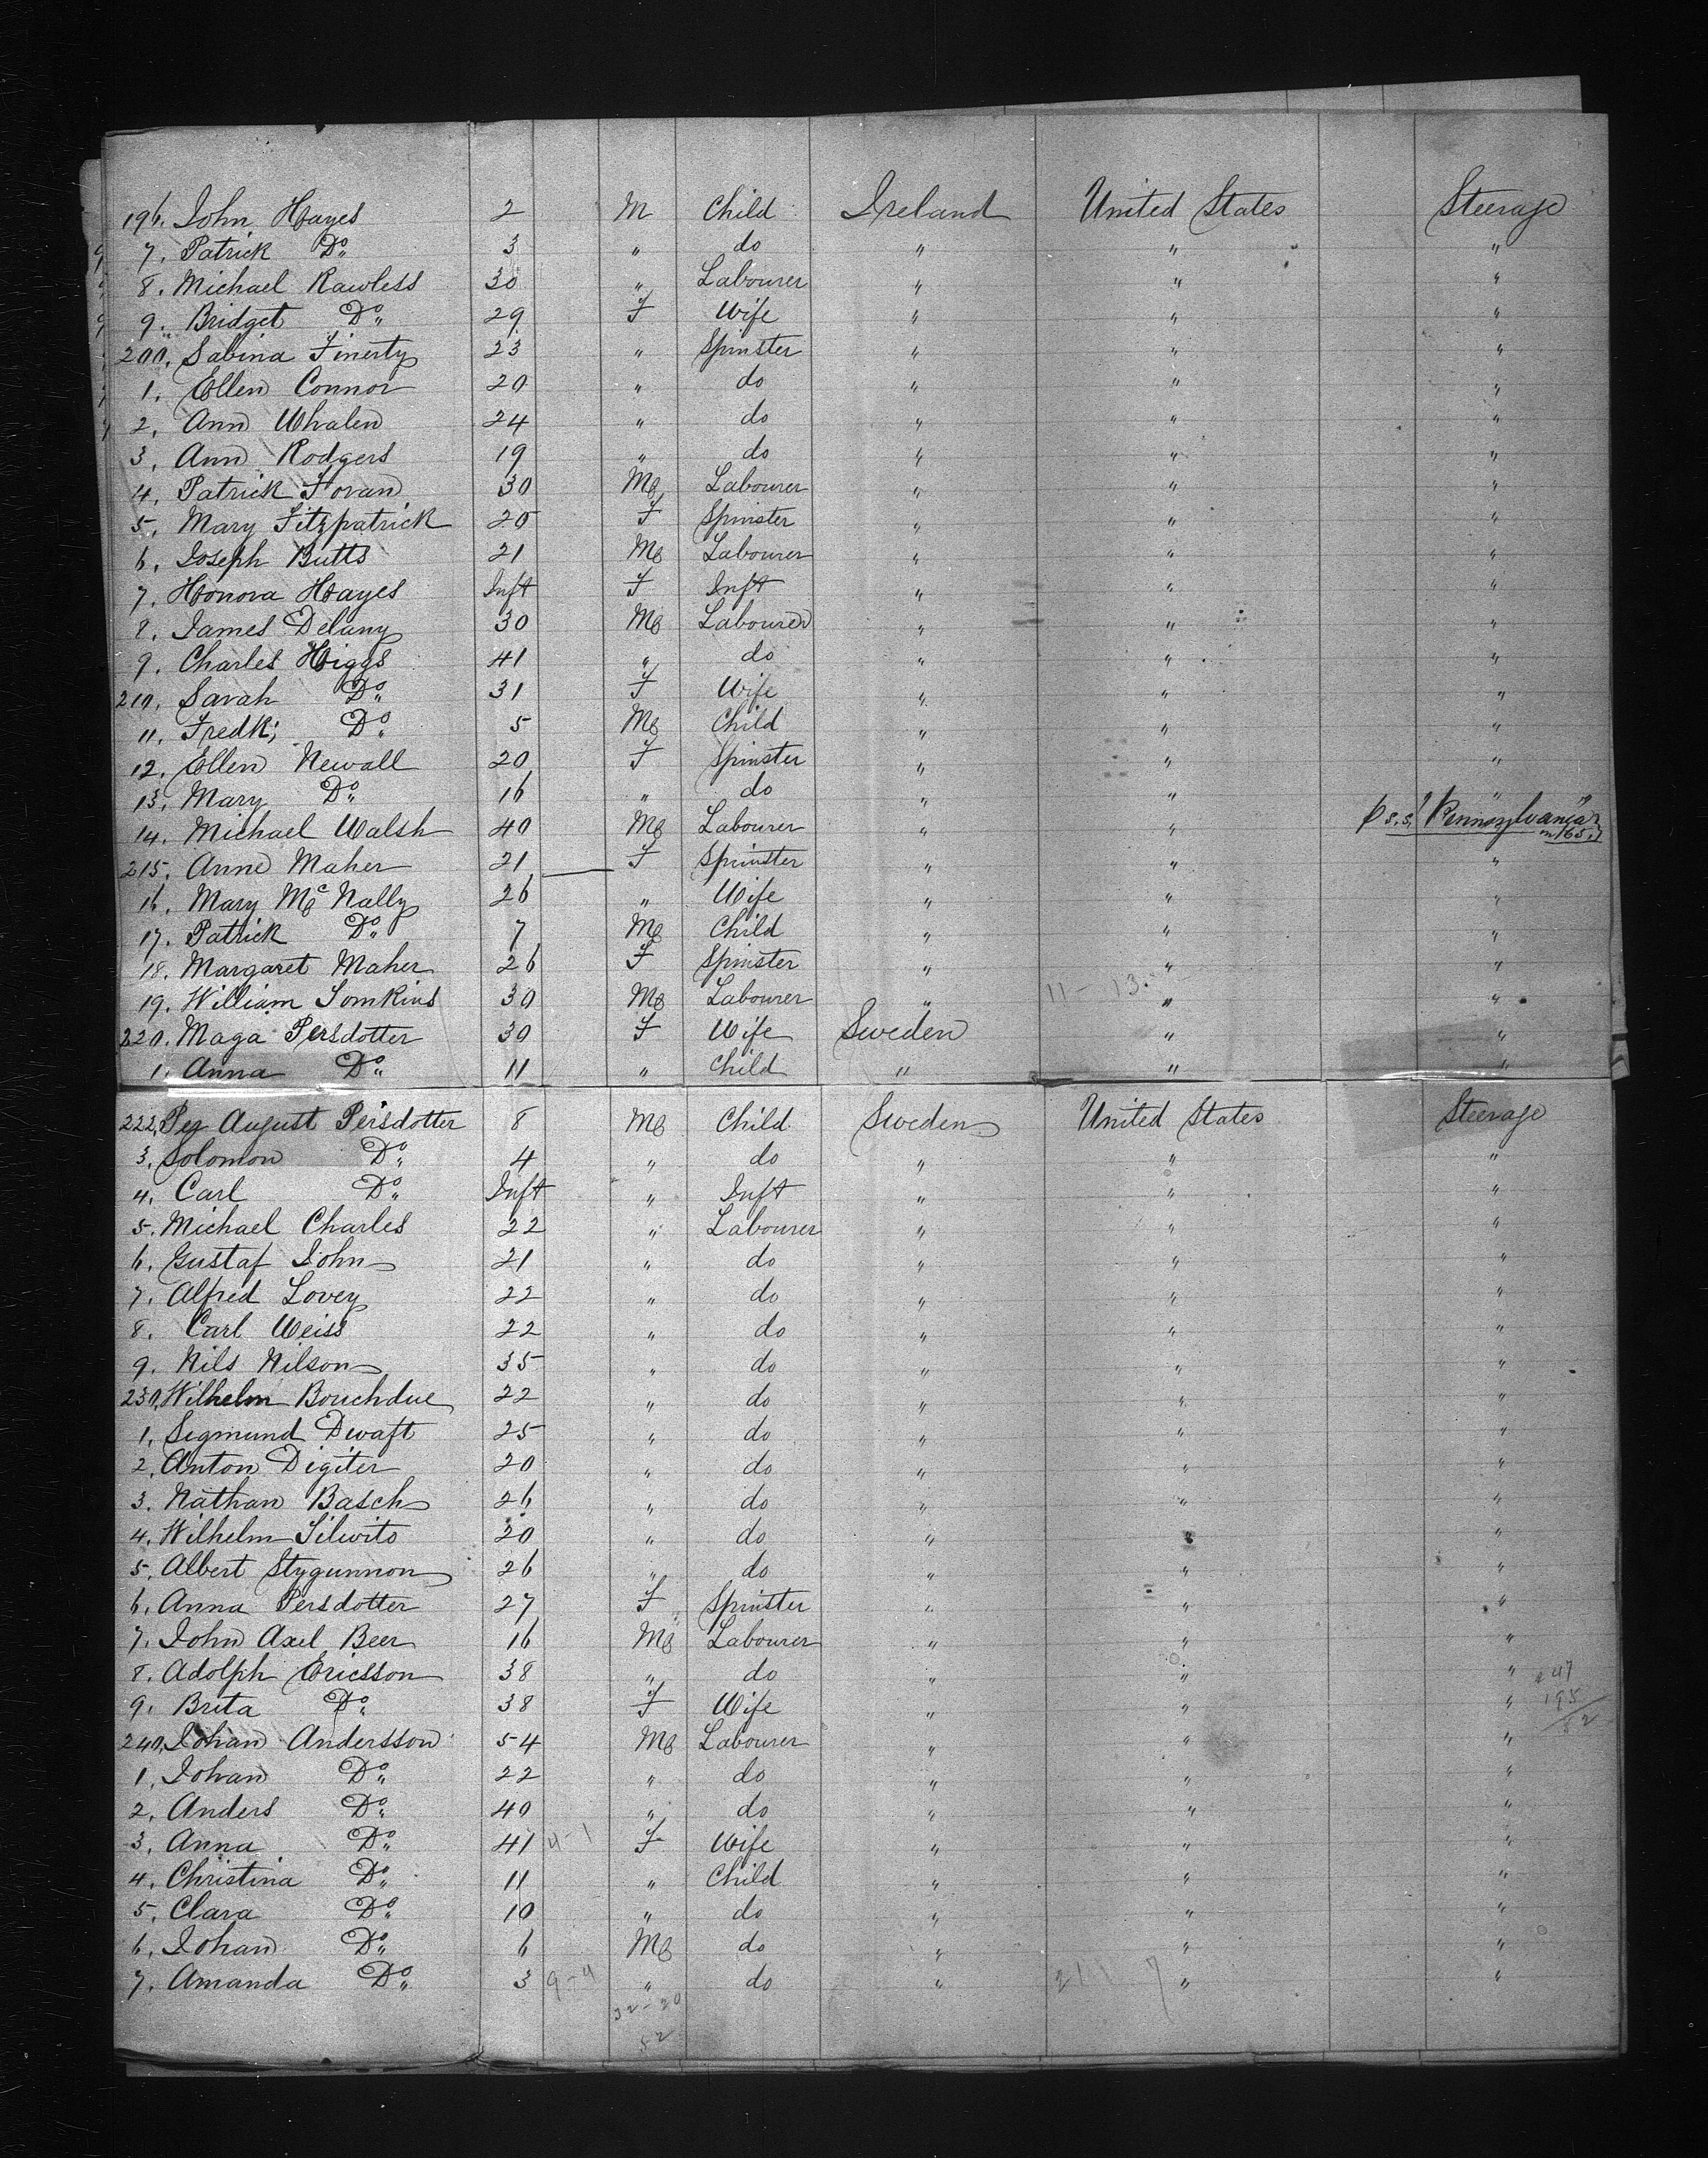 196. John Hayes 2 M Child Ireland United States Steerage
7. Patrick Do 3 " do " " "
8. Michael Rawless 30 " Labourer " " "
9. Bridget Do 29 F Wife " " "
200. Sabina Finerty 23 " Spinster " " "
1. Ellen Connor 20 " do " " "
2. Ann Whalen 24 " do " " "
3. Ann Rodgers 19 " do " " "
4. Patrick Foran 30 M Labourer " " "
5. Mary Fitzpatrick 20 F Spinster " " "
6. Joseph Butts 21 M Labourer " " "
7. Honora Hayes Inft F Inft " " "
8. James Delany 30 M Labourer " " "
9. Charles Higgs 41 " do " " "
210. Sarah Do 31 F Wife " " "
11. Fredk; Do 5 M Child " " "
12. Ellen Newall 20 F Spinster " " "
13. Mary Do 16 " do " " "
14. Michael Walsh 40 M Labourer " " p s.s. "Pennsylvania"
215. Anne Maher 21 F Spinster " " "
16. Mary Mc Nally 26 " Wife " " "
17. Patrick Do 7 M Child " " "
18. Margaret Maher 26 F Spinster " " "
19. William Tomkins 30 M Labourer " 11-13 " "
220. Maga Persdotter 30 F Wife Sweden " "
1. Anna Do 11 " Child " " "
222. Per August Persdotter 8 M Child Sweden United States Steerage
3. Solomon Do 4 " do " " "
4. Carl Do Inft " Inft " " "
5. Michael Charles 22 " Labourer " " "
6. Gustaf John 21 " do " " "
7. Alfred Lovey 22 " do " " "
8. Carl Weiss 22 " do " " "
9. Nils Nilson 35 " do " " "
230. Wilhelm Bouchdue 22 " do " " "
1. Segmund Dwaft 25 " do " " "
2. Anton Digiter 20 " do " " "
3. Nathan Basch 26 " do " " "
4. Wilhelm Silwits 20 " do " " "
5. Albert Stygunnon 26 " do " " "
6. Anna Persdotter 27 F Spinster " " "
7. John Axel Beer 16 M Labourer " " "
8. Adolph Ericsson 38 " do " " " 247
9. Brita Do 38 F Wife " " " 195
52
240. Johan Andersson 54 M Labourer " " "
1. Johan Do 22 " do " " "
2. Anders Do 40 " do " " "
3. Anna Do 41 4-1 F Wife " " "
4. Christina Do 11 " Child " " "
5. Clara Do 10 " do " " "
6. Johan Do 6 M do " " "
7. Amanda Do 3 9-4 " do " " "
32-20
52